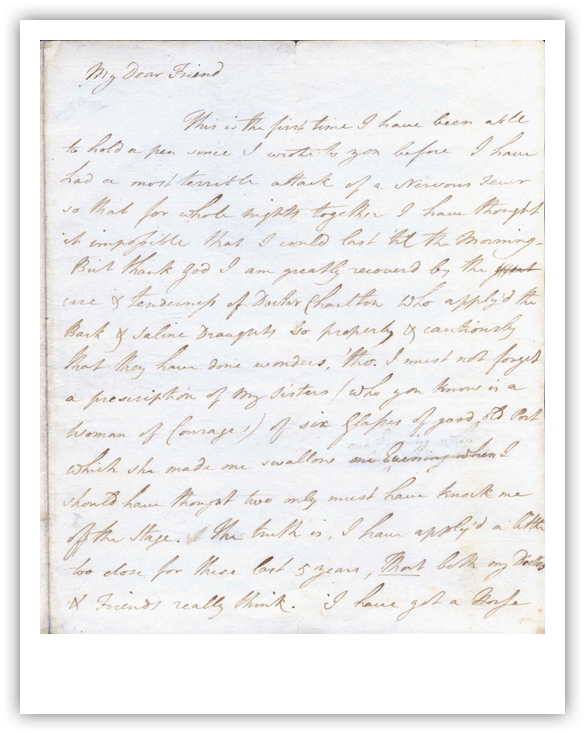 My Dear Friend
This is the first time I have been able
to hold a pen since I wrote to you before I have
had a most terrible attack of a Nervous Fever
so that for whole nights together I have thought
it impossible that I could last 'till the Morning-
But thank God I am greatly recoverd by the great
care & tenderness of Doctor Charlton who apply'd the
Bark & saline Draughts so properly & cautiously
that they have done wonders, 'tho. I must not forget
a prescription of my Sisters (who you know is a
Woman of Courage,) of six Glasses of good old Port
which she made me swallow one Evening when I
should have thought two only must have knock me
of the Stage. The truth is, I have apply'd a little
too close for these last 5 years, That both my Doctor
& Friends really think. I have got a Horse